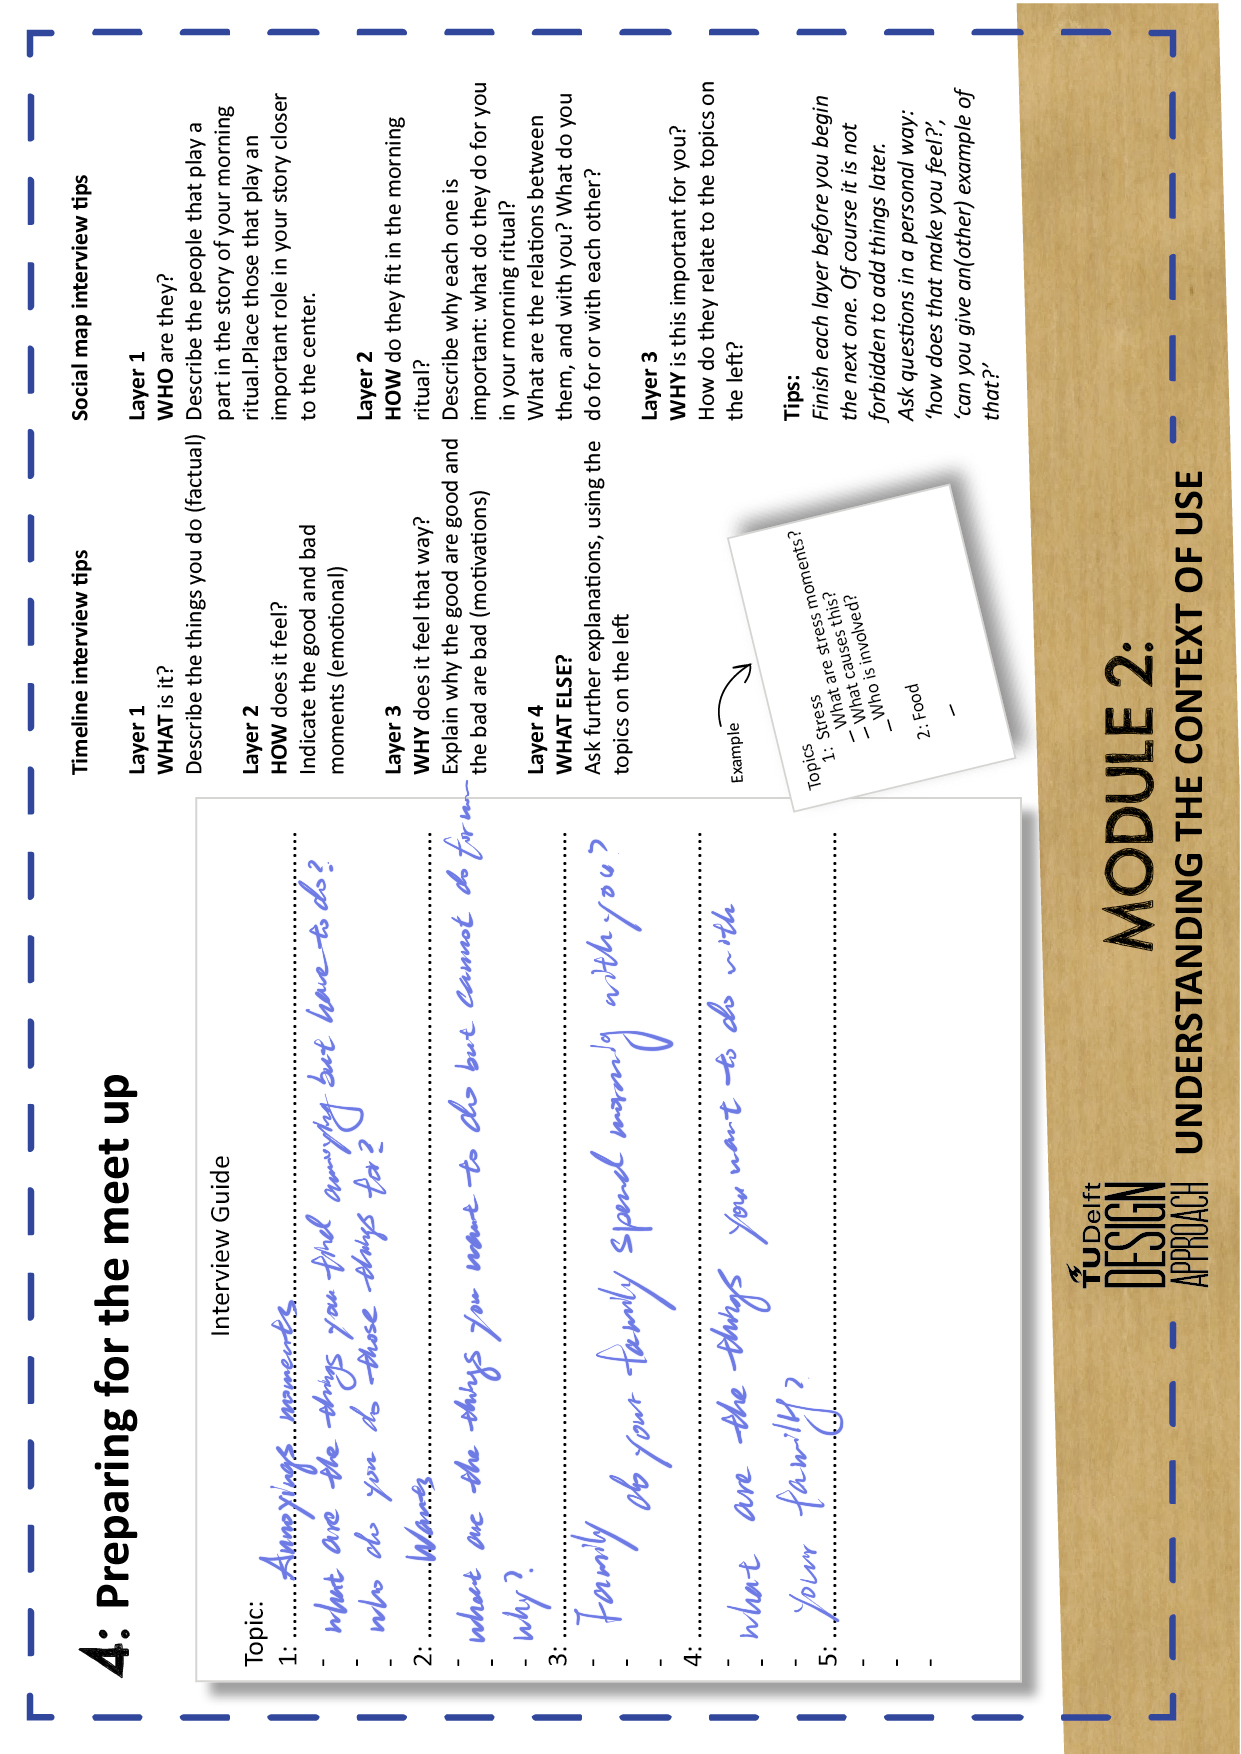 4: Preparing for the meet up
Interview Guide
Topic:
1: Annoyings moments
- what are the things you find annoying but have to do?
- who do you do those things for?
-
2: Wants
- what are the things you want to do but cannot do
- why?
-
3:
- Family do your family spend morning with you?
-
-
4:
- what are the things your want to do with
- your family?
-
5:
-
-
-
Timeline interview tips
Layer 1
WHAT is it?
Describe the things you do (factual)
Layer 2
HOW does it feel?
Indicate the good and bad
moments (emotional)
Layer 3
WHY does it feel that way?
Explain why the good are good and
the bad are bad (motivations)
Layer 4
WHAT ELSE?
Ask further explanations, using the
topics on the left
Example
Topics
1: Stress
– What are stress moments?
– What causes this?
– Who is involved?
–
2: Food
–
Social map interview tips
Layer 1
WHO are they?
Describe the people that play a
part in the story of your morning
ritual.Place those that play an
important role in your story closer
to the center.
Layer 2
HOW do they fit in the morning
ritual?
Describe why each one is
important: what do they do for you
in your morning ritual?
What are the relations between
them, and with you? What do you
do for or with each other?
Layer 3
WHY is this important for you?
How do they relate to the topics on
the left?
Tips:
Finish each layer before you begin
the next one. Of course it is not
forbidden to add things later.
Ask questions in a personal way:
‘how does that make you feel?’,
‘can you give an(other) example of
that?’
TUDelft
DESIGN
APPROACH
MODULE 2:
UNDERSTANDING THE CONTEXT OF USE